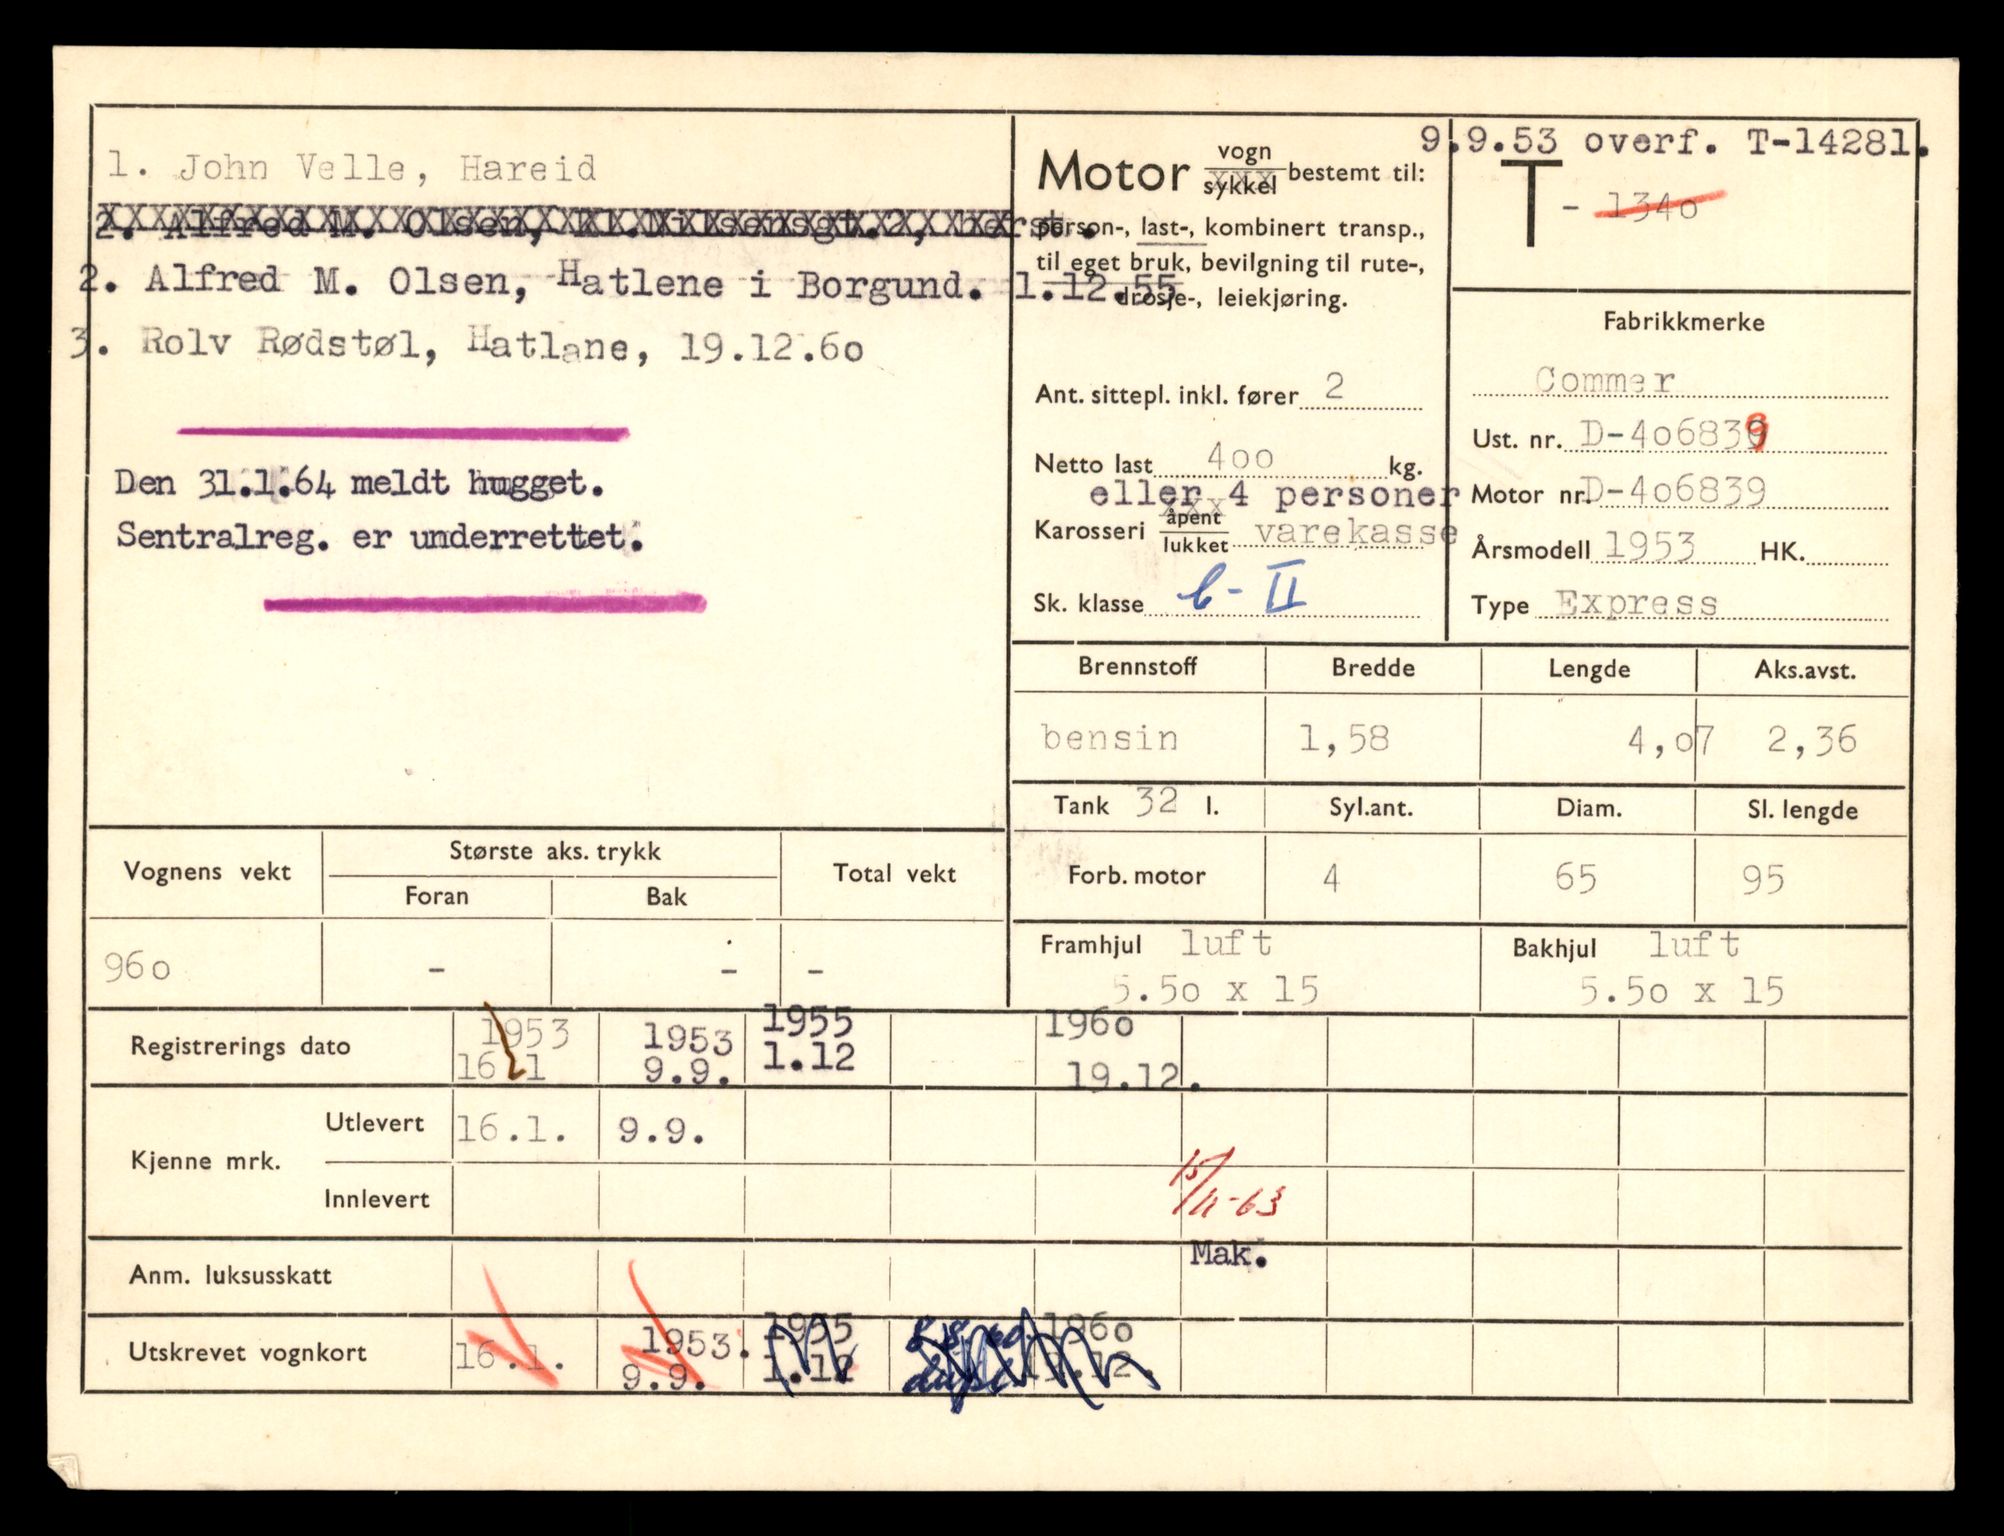 1. John Velle, Hareid
2. Alfred M. Olsen,
2. Alfred M. Olsen, Hatlene i Borgund. 1.12.55
3. Rolv Rødstøl, Hatlane, 19.12.60
Den 31.1.64 meldt hugget.
Sentralreg. er underrettet.
9.9.53 overf. T-14281.
Motor vogn sykkel bestemt til:
person-, last-, kombinert transp.,
til eget bruk, bevilgning til rute-,
drosje-, leiekjøring.
T - 1340
Ant. sittepl. inkl. fører 2
Netto last 400 kg.
eller 4 personer
Karosseri åpent lukket varekasse
Sk. klasse b - II
Fabrikkmerke
Commer
Ust. nr. D-406839
Motor nr. D-406839
Årsmodell 1953 HK.
Type Express
Brennstoff Bredde Lengde Aks.avst.
bensin 1,58 4,07 2,36
Tank 32 l. Syl.ant. Diam. Sl. lengde
Forb. motor 4 65 95
Framhjul luft Bakhjul luft
5.50 x 15 5.50 x 15
Vognens vekt Største aks. trykk Total vekt
Foran Bak
960 - - -
Registrerings dato 1953 1953 1955 1960
16 1 9.9. 1.12 19.12.
Kjenne mrk.
Utlevert 16.1. 9.9.
Innlevert 15/11-63
Anm. luksusskatt Mak.
Utskrevet vognkort 16.1. 1953. 1955 1960
9.9. 1.12 19.12.